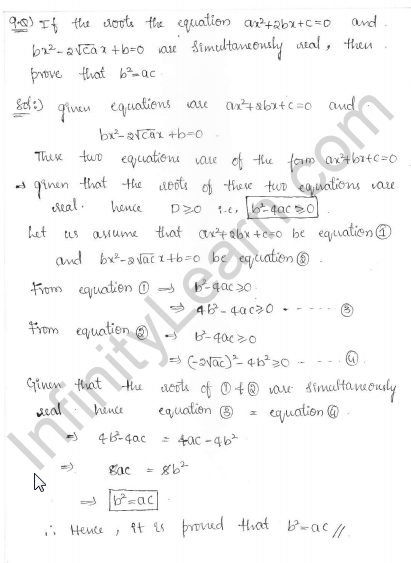 9.Q) If the roots the equation ax²+2bx+c=0 and
bx²-2√ca x+b=0 are simultaneously real, then
prove that b²=ac.
Sol:) given equations are ax²+2bx+c=0 and
bx²-2√ca x+b=0.
These two equations are of the form ax²+bx+c=0
→ given that the roots of these two equations are
real. hence D≥0 i.e, b²-4ac≥0
Let us assume that ax²+2bx+c=0 be equation ①
and bx²-2√ac x+b=0 be equation ②.
From equation ① ⇒ b²-4ac≥0
⇒ 4b²-4ac≥0 - - - - - - ③
From equation ② ⇒ b²-4ac≥0
⇒ (-2√ac)²-4b²≥0 - - - - - ④
Given that the roots of ① & ② are simultaneously
real. hence equation ③ = equation ④.
⇒ 4b²-4ac = 4ac-4b²
⇒ 8ac = 8b²
⇒ b²=ac
∴ Hence, it is proved that b²=ac //
InfinityLearn.com